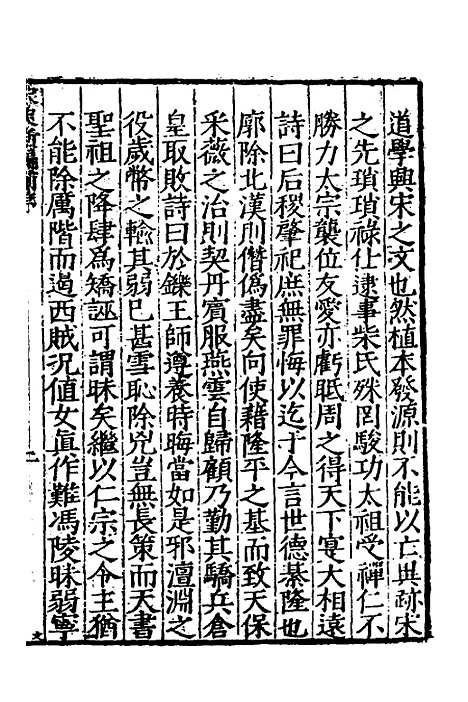 道學興宋之文也然植本發源則不能以亡異跡宋
之先瑣瑣祿仕逮事柴氏殊罔駿功太祖受禪仁不
勝力太宗襲位友愛亦虧眡周之得天下寔大相遠
詩曰后稷肇祀庶無罪悔以迄于今言世德綦隆也
廓除北漢則僭偽盡矣向使藉隆平之基而致天保
采薇之治則契丹賓服燕雲自歸顧乃勤其驕兵倉
皇取敗詩曰於鑠王師遵養時晦當如是邪澶淵之
役歲幣之輸其弱已甚雪恥除兇豈無長策而天書
聖祖之降肆為矯誣可謂昧矣繼以仁宗之令主猶
不能除厲階而遏西賊況值女真作難馮陵昧弱寧
宋史新編序
二